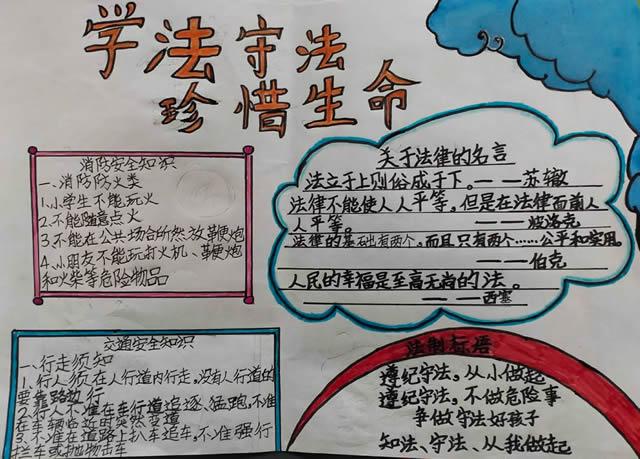 学法守法
珍惜生命
消防安全知识
一、消防防火类
1.小学生不能玩火
2.不能随意点火
3.不能在公共场合所燃放鞭炮
4.小朋友不能玩打火机、鞭炮
和火柴等危险物品
关于法律的名言
法立于上则俗成于下。——苏辙
法律不能使人人平等，但是在法律面前人
人平等。——波洛克
法律的基础有两个，而且只有两个……公平和实用。
——伯克
人民的幸福是至高无尚的法。
——西塞
交通安全知识
一、行走须知
1.行人须在人行道内行走，没有人行道的
要靠路边行
2.行人不准在车行道追逐、猛跑，不准
在车辆临近时突然变道
3.不准在道路上扒车追车，不准强行
拦车或抛物击车
法制标语
遵纪守法，从小做起
遵纪守法，不做危险事
争做守法好孩子
知法、守法、从我做起